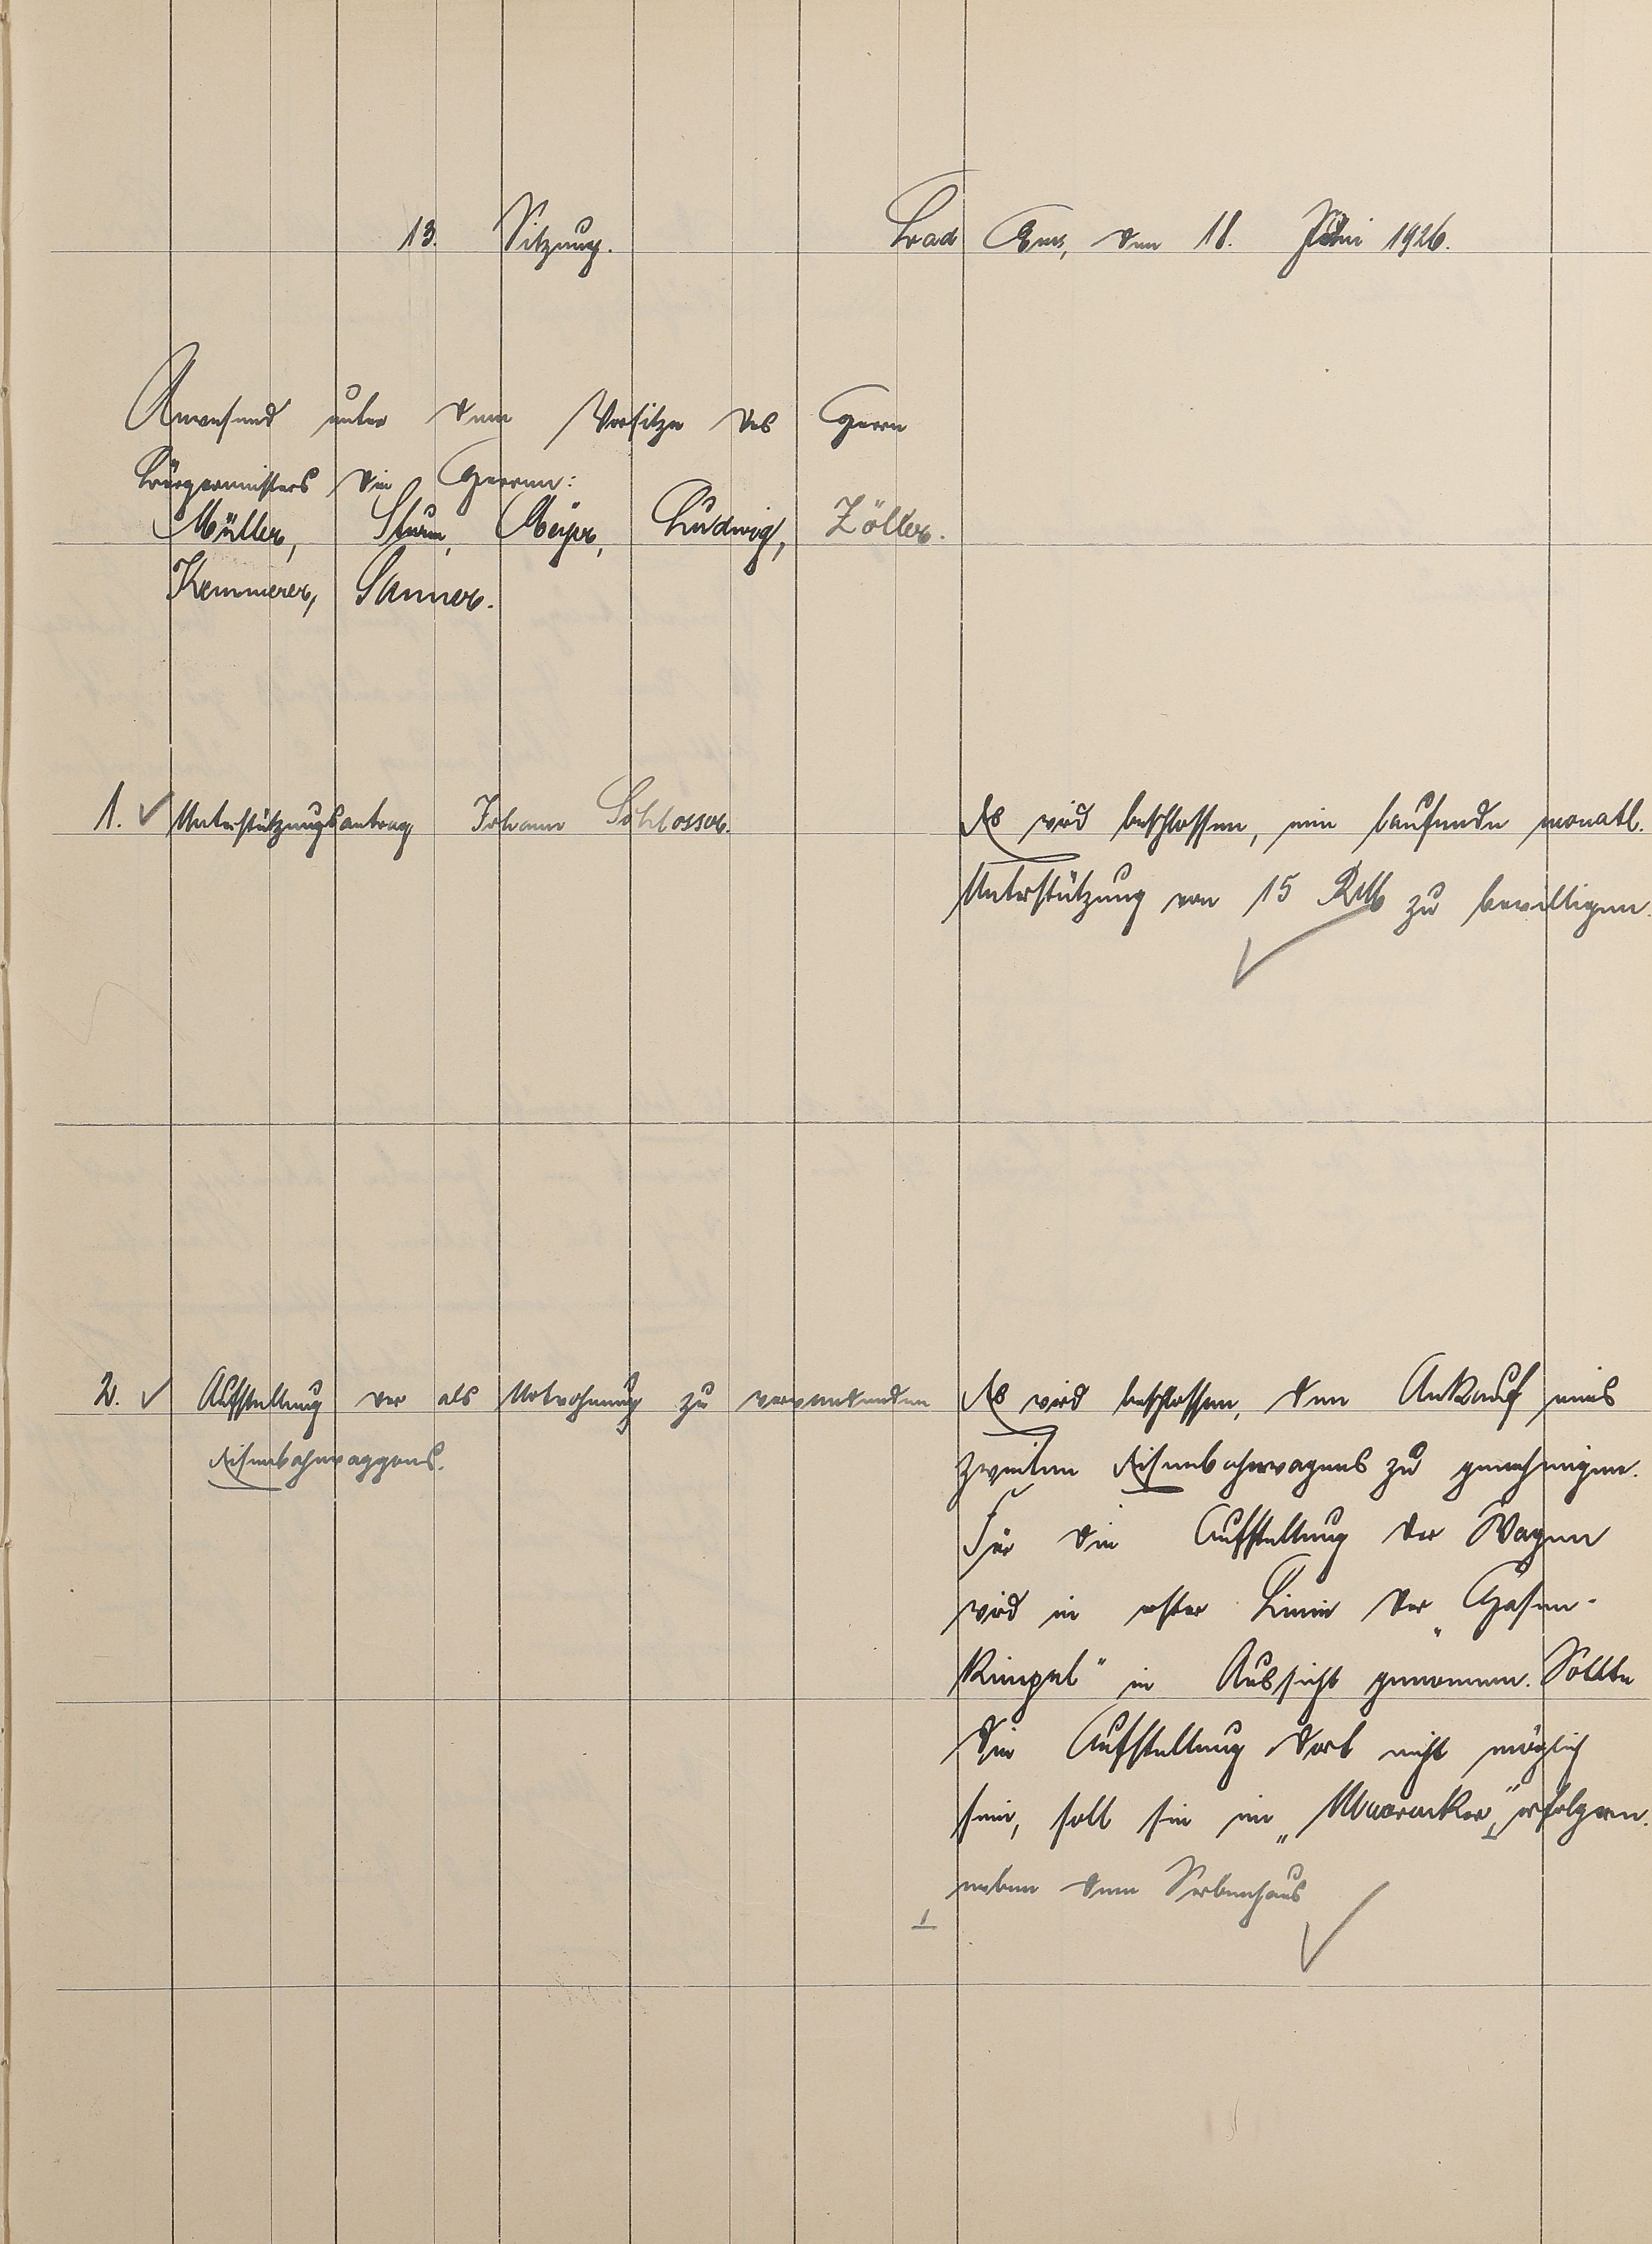 13. Sitzung. Bad Ems, den 18. Juni 1926.
Anwesend unter dem Vorsitze des Herrn
Bürgermeisters die Herren:
Müller, Sturm, Meyer, Ludwig, Zöller.
Kemmerer, Sanner.
1. ✓ Unterstützungsantrag Johann Schlosser.
Es wird beschlossen, eine laufende monatl.
Unterstützung von 15 RM zu bewilligen.
2. ✓ Aufstellung der als Notwohnung zu verwendenden
Eisenbahnwaggons.
Es wird beschlossen, den Ankauf eines
zweiten Eisenbahnwagens zu genehmigen.
Für die Aufstellung der Wagen
wird in erster Linie der „Hasen-
kümpel" in Aussicht genommen. Sollte
die Aufstellung dort nicht möglich
sein, soll sie im erfolgen.
neben dem